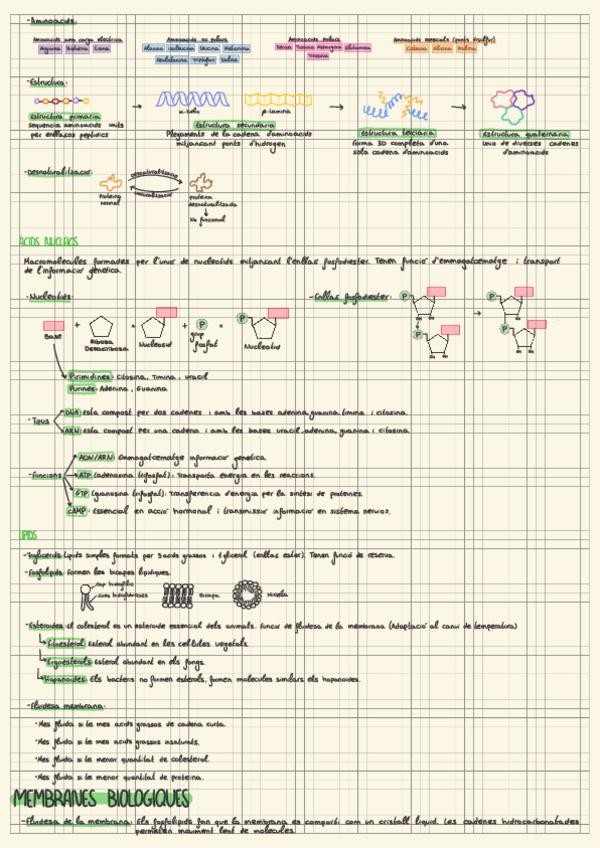 -Aminoàcids:
Aminoàcids amb carga elèctrica
Arginina Histidina Lisina
Aminoàcids no polars
Alanina Isoleucina Leucina Metionina
Fenilalanina Triptòfan Valina
Aminoàcids polars
Serina Treonina Asparagina Glutamina
Tirosina
Aminoàcids especials (ponts disulfur)
Cisteïna Glicina Prolina
-Estructura:
Estructura primària
sequencia aminoàcids units
per enllaços peptídics
α-hèlix
β-làmina
Estructura secundària
Plegaments de la cadena d'aminoàcids
mitjançant ponts d'hidrogen
Estructura terciària
forma 3D completa d'una
sola cadena d'aminoàcids
Estructura quaternària
Unió de diverses cadenes
d'aminoàcids
-Desnaturalització:
Desnaturalització
Proteïna
normal
proteïna
desnaturalitzada
No funcional
ÀCIDS NUCLEICS
Macromolècules formades per l'unió de nucleòtids mitjançant l'enllaç fosfodièster. Tenen funció d'emmagatzematge i transport
de l'informació genètica.
-Nucleòtids:
Base
+
Ribosa
Desoxiribosa
Nucleòsid
+
P
grup
fosfat
P
Nucleòtid
-Enllaç fosfodièster:
P
P
P
P
Pirimidines: Citosina, Timina, Uracil
Purines: Adenina, Guanina
-Tipus
DNA: Esta compost per dos cadenes i amb les bases adenina, guanina, timina i citosina.
ARN: Esta compost per una cadena i amb les bases uracil, adenina, guanina i citosina.
-Funcions
ADN/ARN: Emmagatzematge informació genètica.
ATP (adenosina trifosfat): Transporta energia en les reaccions.
GTP (guanosina trifosfat): Transferencia d'energia per la síntesi de proteïnes.
cAMP: Essencial en acció hormonal i transmissió informació en sistema nerviós.
LÍPIDS
-Triglicèrids: Lípids simples formats per 3 àcids grassos i 1 glicerol (enllaç èster). Tenen funció de reserva.
-Fosfolípids: Formen les bicapes lipídiques.
cap hidròfilic
cues hidrofòbiques
Bicapa
Micela
-Esteroides: El colesterol es un esteroide essencial dels animals. Funció de fluïdesa de la membrana (Adaptació al canvi de temperatura)
Fitoesterol: Esterol abundant en les cèl·lules vegetals.
Ergoesterols: Esterol abundant en els fongs.
Hopanoides: Els bacteris no formen esterols, formen molècules similars els hopanoides.
-Fluïdesa membrana:
·Més fluida si te més àcids grassos de cadena curta.
·Més fluida si te més àcids grassos insaturats.
·Més fluida si te menor quantitat de colesterol.
·Més fluida si te menor quantitat de proteïna.
MEMBRANES BIOLÒGIQUES
-Fluïdesa de la membrana: Els fosfolípids fan que la membrana es comporti com un cristall líquid. Les cadenes hidrocarbonatades
permetin moviment lent de molècules.